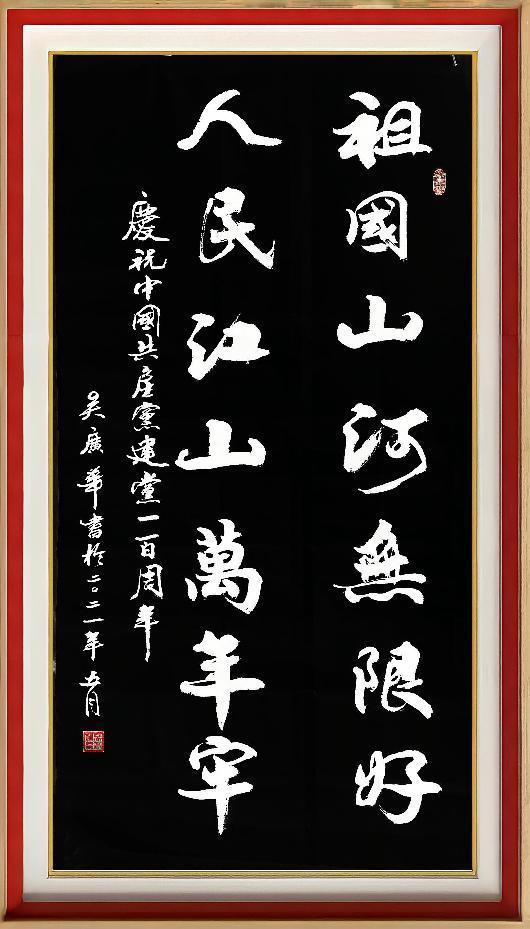 祖國山河無限好
人民江山萬年牢
慶祝中國共産黨建黨一百周年
吴廣華書於二〇二一年五月